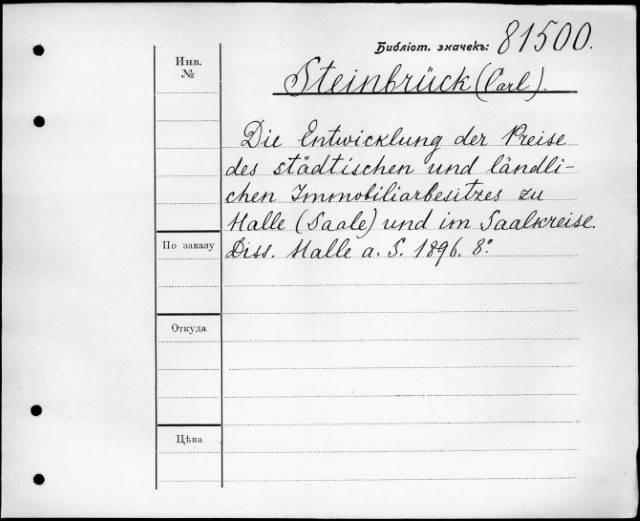 Библіот. значекъ: 81500.
Инв.
№
Steinbrück (Carl).
Die Entwicklung der Preise
des städtischen und ländli-
chen Immobiliarbesitzes zu
Halle (Saale) und im Saalkreise.
По заказу
Diss. Halle a. S. 1896. 8°
Откуда
Цѣна